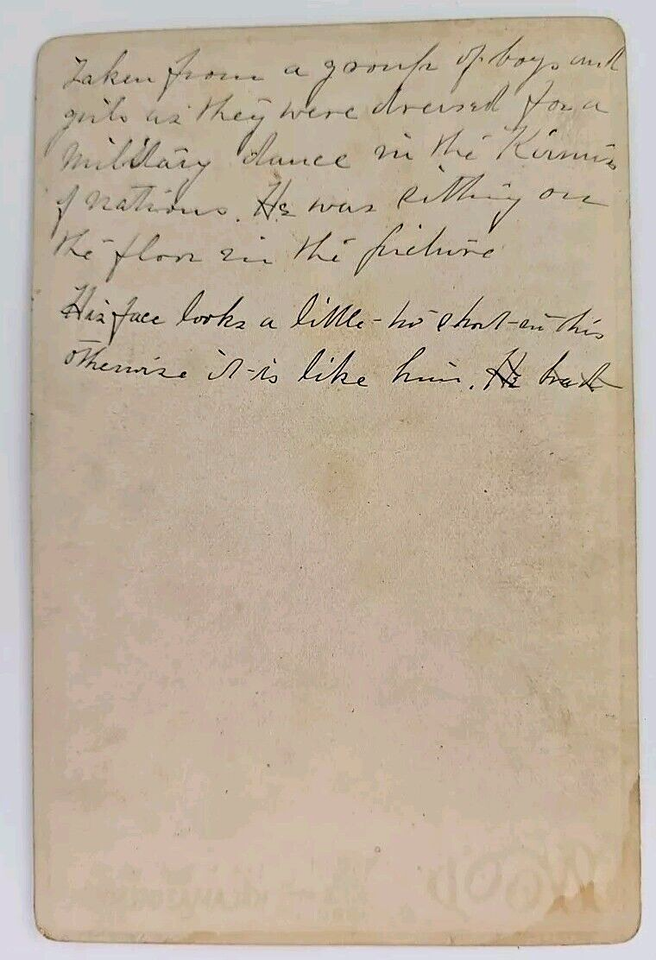 Taken from a group of boys and
girls as they were dressed for a
Military dance in the Kirmis
of Nations. He was sitting on
the floor in the picture
His face looks a little too short in this
otherwise it is like him. He had
WOOD